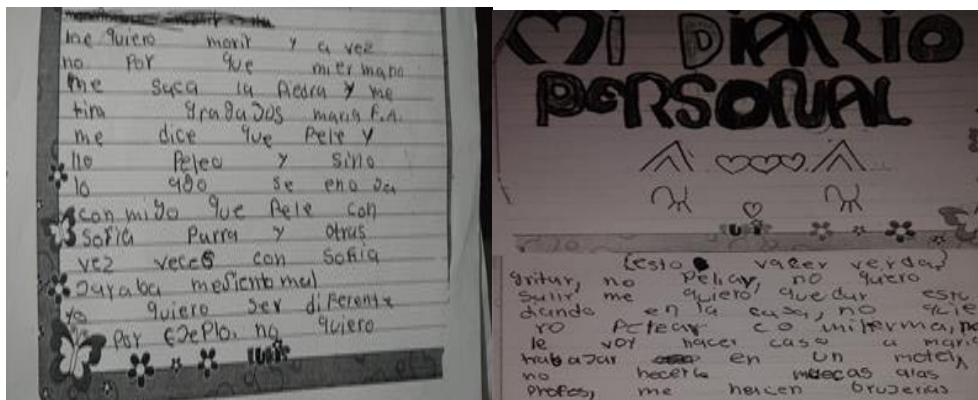 me quiero morir y a vez
no por que mi ermano
me saca la piedra y me
tira maria F.A.
me dice que pele y
llo peleo y sino
lo ago se enoja
con migo que pele con
Sofia Purra y otras
vez veces con Sofia
Jaraba me siento mal
yo quiero ser diferente
por ejeplo. no quiero
MI DIARIO
PERSONAL
(esto vaser verda)
gritar, no peliar, no quero
salir me quiero quedar estu
diando en la casa, no quie
ro pelear co miferma,
le voy hacer caso a maria
trabajar en un motel,
no hecerle muecas alas
profes, me hercen brujerias